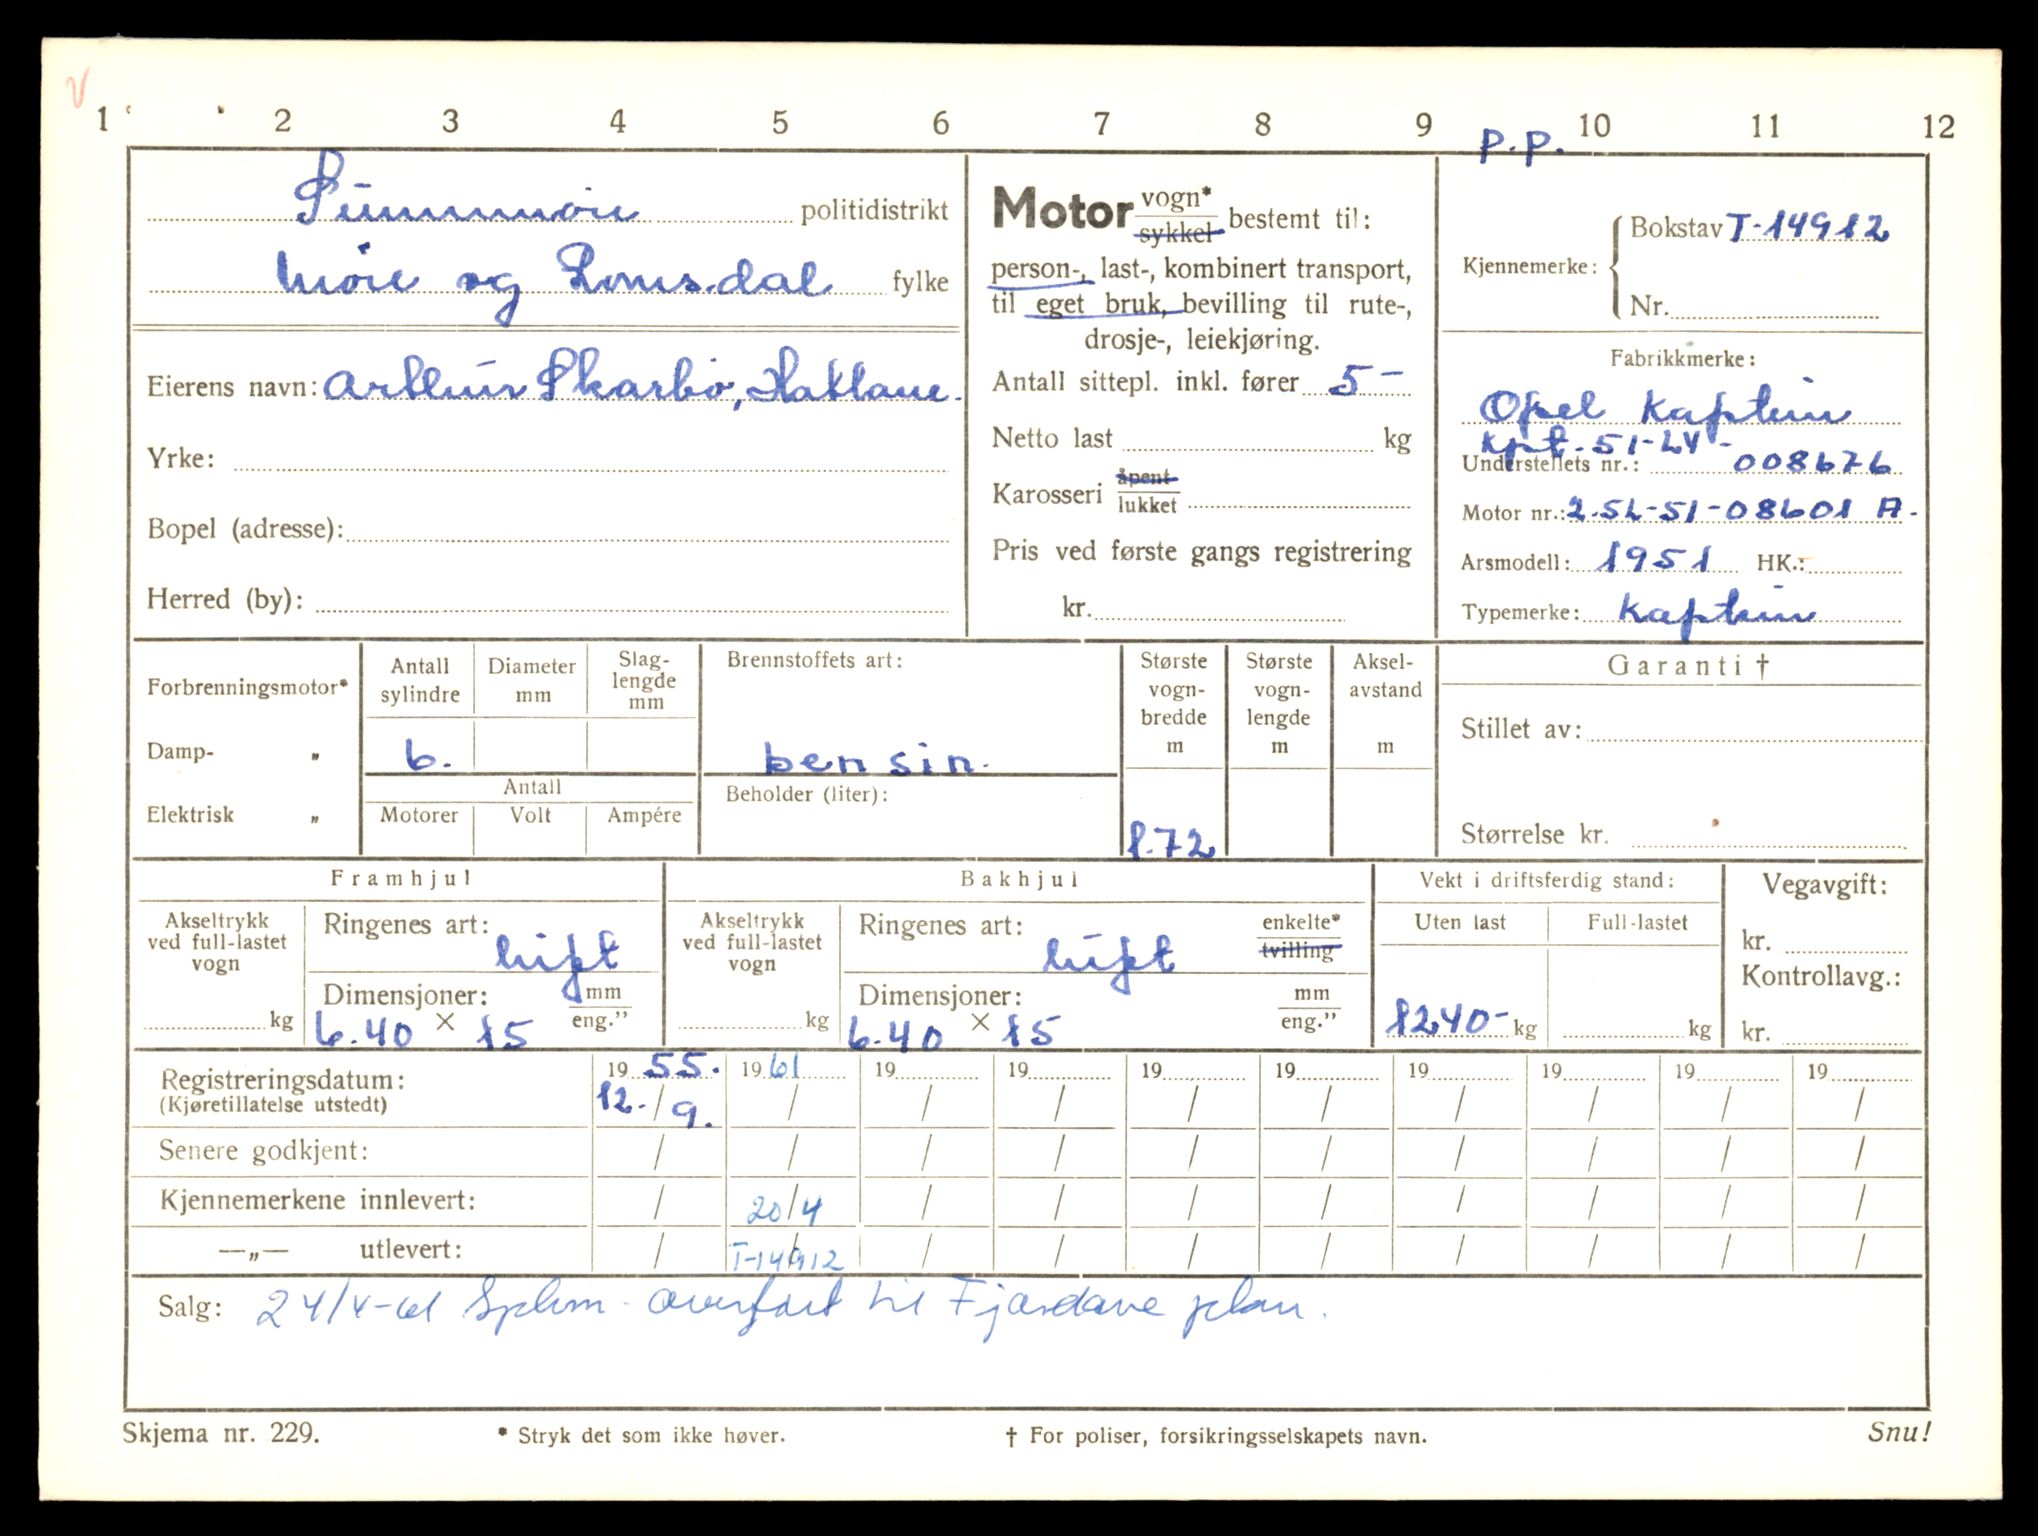 V
1 2 3 4 5 6 7 8 9 10 11 12
p.p.
Sunnmøre politidistrikt
Møre og Romsdal fylke
Eierens navn: Arthur Skarbø, Hatlane.
Yrke:
Bopel (adresse):
Herred (by):
Motor vogn* sykkel bestemt til:
person-, last-, kombinert transport,
til eget bruk, bevilling til rute-,
drosje-, leiekjøring.
Antall sittepl. inkl. fører 5-
Netto last kg
Karosseri åpent lukket
Pris ved første gangs registrering
kr.
Kjennemerke: Bokstav T-14912
Nr.
Fabrikkmerke:
Opel Kaptein
Kpt.-51-LV-
Understellets nr.: 008676
Motor nr.: 2.5L-51-08601 A.
Årsmodell: 1951 HK.:
Typemerke: Kaptein
Forbrenningsmotor*
Damp- „
Elektrisk „
Antall sylindre
Diameter mm
Slag-lengde mm
6.
Antall
Motorer Volt Ampére
Brennstoffets art:
bensin.
Beholder (liter):
Største vogn-bredde m
1.72
Største vogn-lengde m
Aksel-avstand m
Garanti †
Stillet av:
Størrelse kr.
Framhjul
Akseltrykk ved full-lastet vogn
kg
Ringenes art: luft
Dimensjoner: mm
6.40 × 15 eng.”
Bakhjul
Akseltrykk ved full-lastet vogn
kg
Ringenes art: luft
enkelte* tvilling
Dimensjoner: mm
6.40 × 15 eng.”
Vekt i driftsferdig stand:
Uten last Full-lastet
1240- kg kg
Vegavgift:
kr.
Kontrollavg.:
kr.
Registreringsdatum: 19 55. 19 61 19 19 19 19 19 19 19 19
(Kjøretillatelse utstedt) 12./9. / / / / / / / / /
Senere godkjent: / / / / / / / / / /
Kjennemerkene innlevert: / 20/4 / / / / / / / /
—„— utlevert: / T-14912 / / / / / / / /
Salg: 24/4-61 Splkm. overført til Fjordane plkm.
Skjema nr. 229. * Stryk det som ikke høver. † For poliser, forsikringsselskapets navn. Snu!